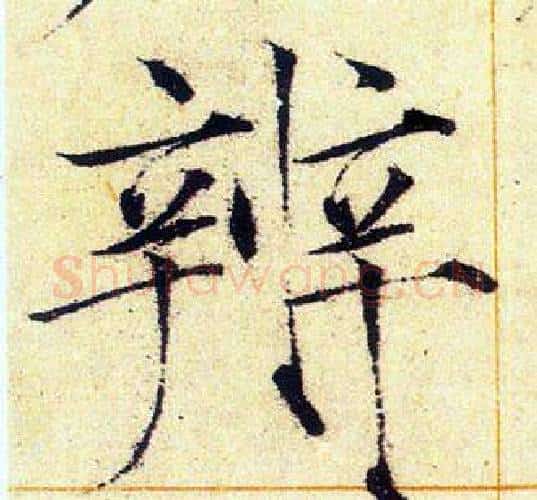 辨
Shufawang.cn